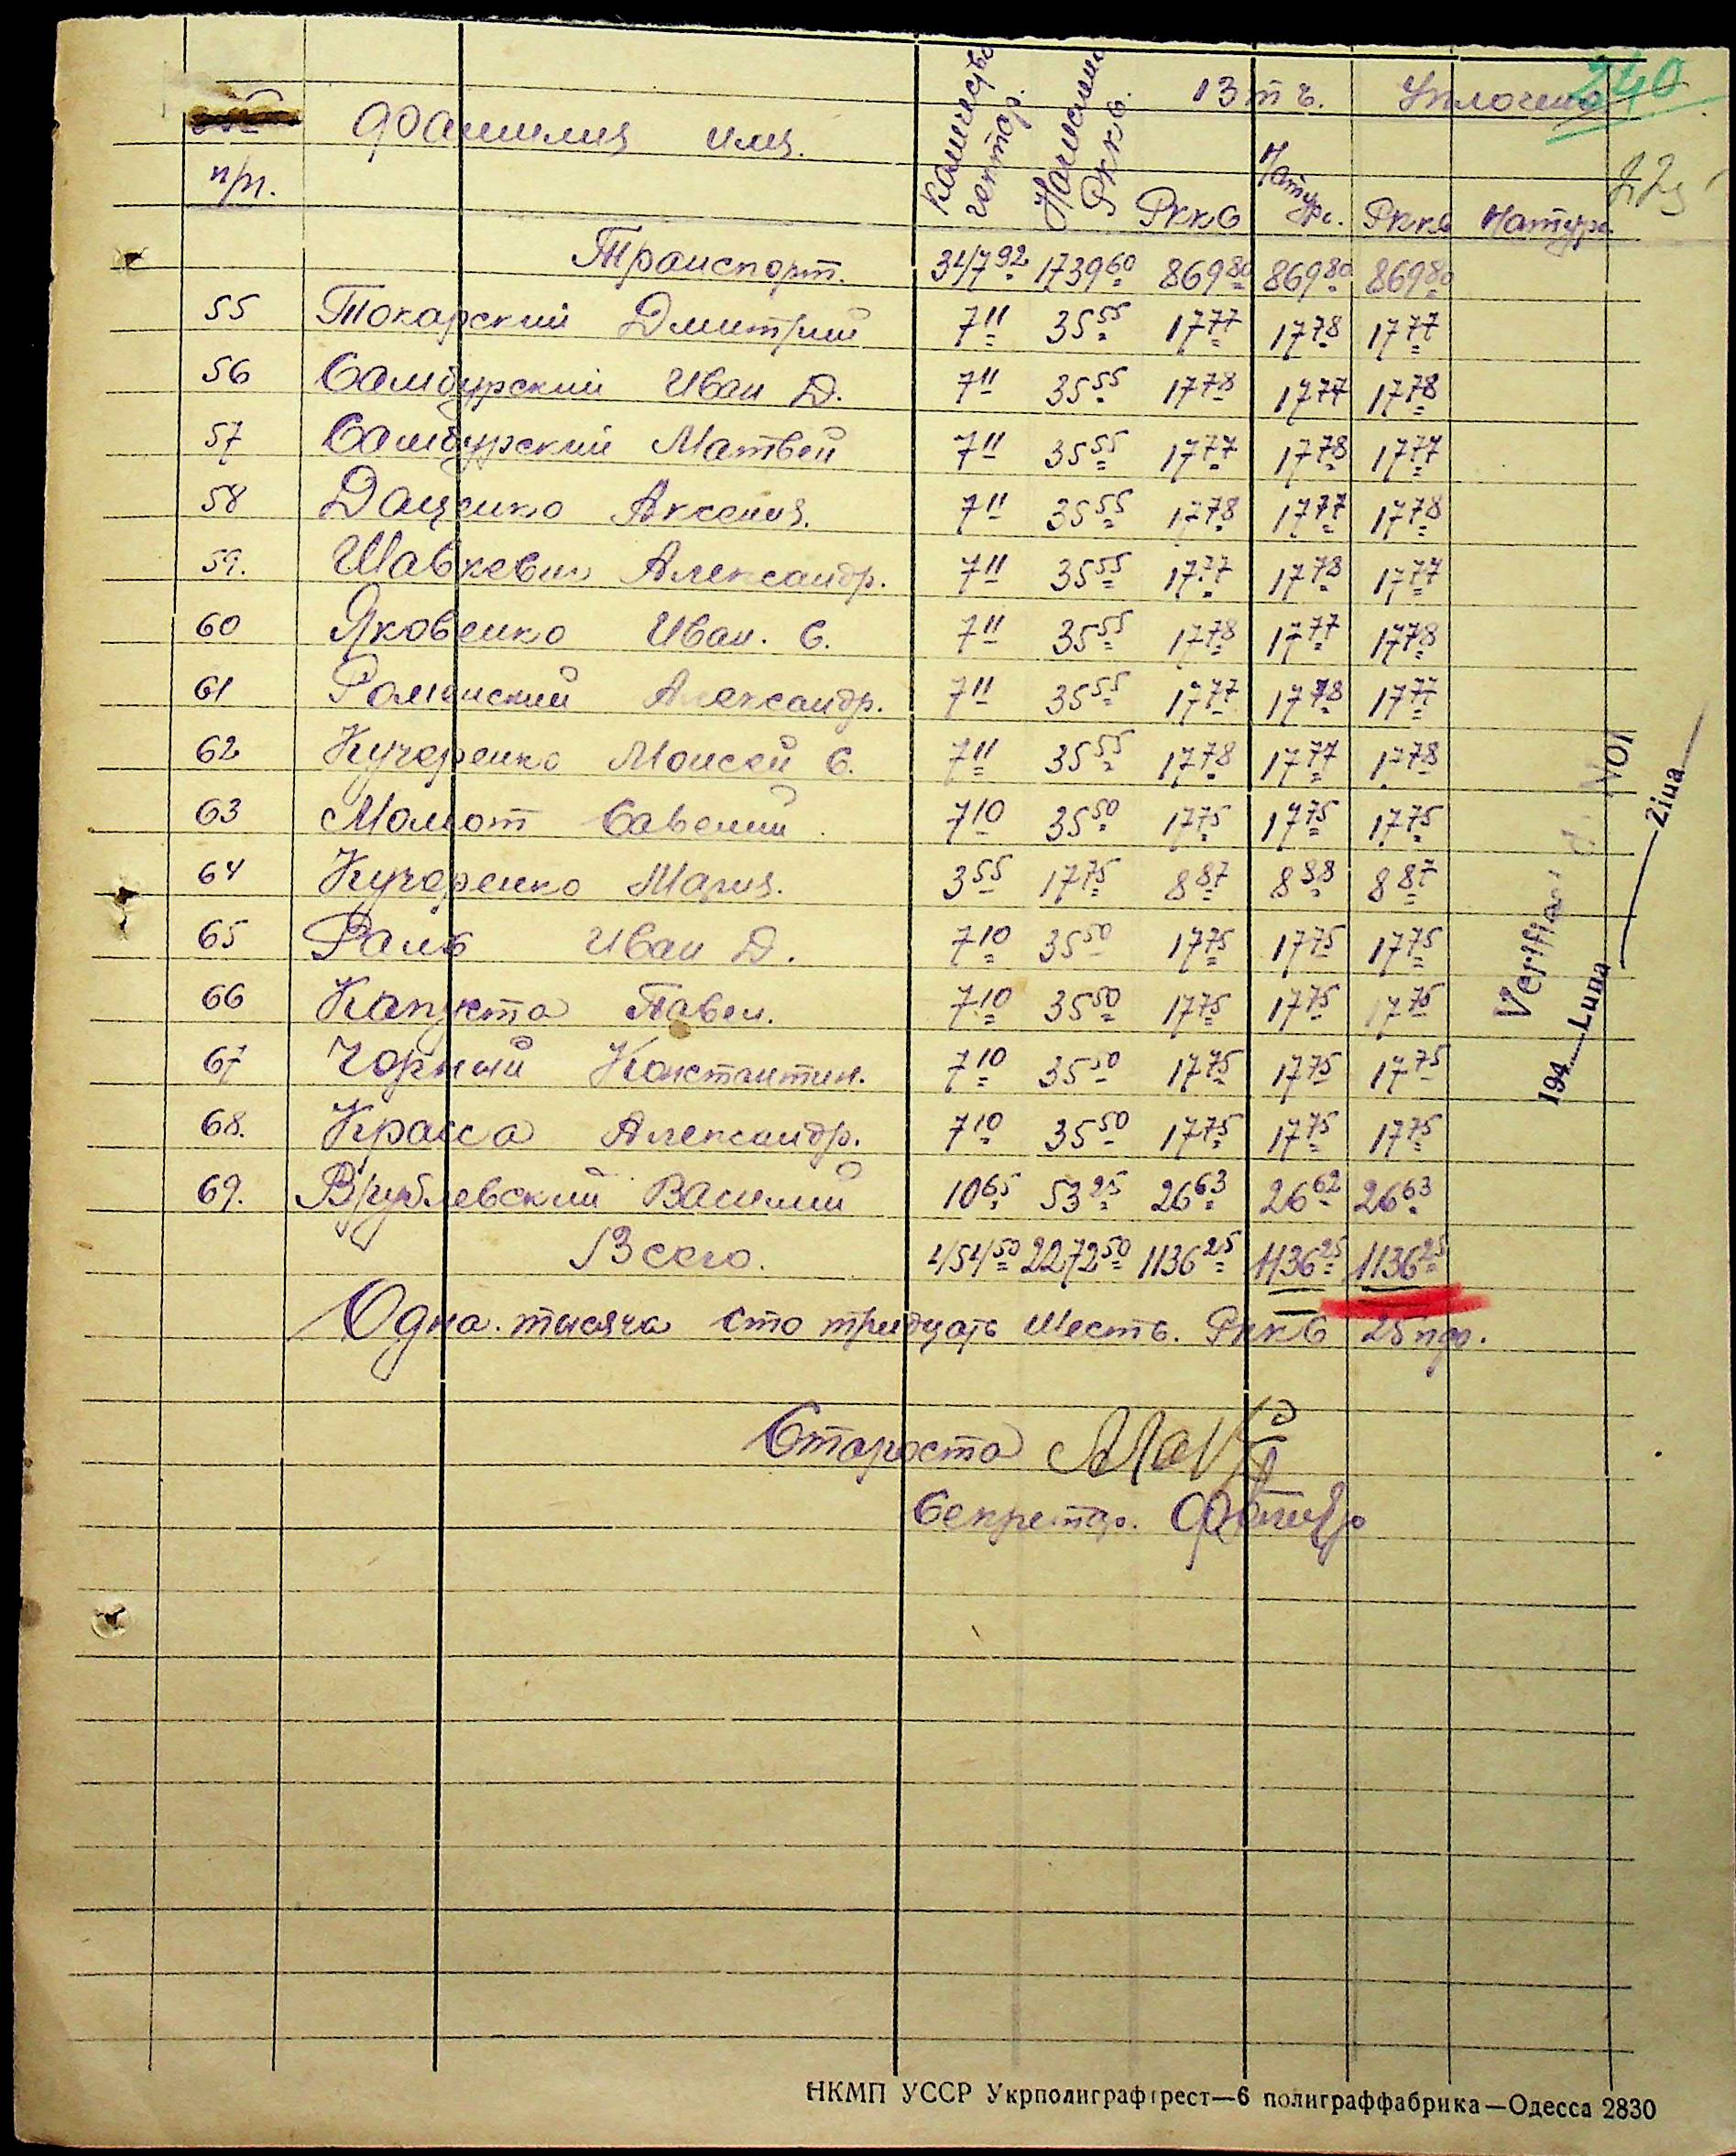 240
Фамилия имя. Количество гектар. Начислено РККС В т ч. Уплочено
п/п. РККС Натура. РККС Натура
Транспорт. 347 92 1739 60 869 80 869 80 869 80
55 Токарский Дмитрий 7 11 35 55 17 77 17 78 17 77
56 Самбурский Иван Д. 7 11 35 55 17 78 17 77 17 78
57 Самбурский Матвей 7 11 35 55 17 77 17 78 17 77
58 Даценко Аксения. 7 11 35 55 17 78 17 77 17 78
59. Шавкевич Александр. 7 11 35 55 17 77 17 78 17 77
60 Яковенко Иван. С. 7 11 35 55 17 78 17 77 17 78
61 Роменский Александр. 7 11 35 55 17 77 17 78 17 77
62 Кучеренко Моисей С. 7 11 35 55 17 78 17 77 17 78
63 Момот Савелий 7 10 35 50 17 75 17 75 17 75
64 Кучеренко Мария. 3 55 17 75 8 87 8 88 8 87
65 Раль Иван Д. 7 10 35 50 17 75 17 75 17 75
66 Капуста Павел. 7 10 35 50 17 75 17 75 17 75
67 Чорный Константин. 7 10 35 50 17 75 17 75 17 75
68. Красса Александр. 7 10 35 50 17 75 17 75 17 75
69. Врублевский Василий 10 65 53 25 26 63 26 62 26 63
Всего. 454 50 2272 50 1136 25 1136 25 1136 25
Одна тысяча сто тридцать шесть. РККС 25 пф.
Староста
Секретар.
Verificat d. Noi
194 Luna Ziua
НКМП УССР Укрполиграфтрест—6 полиграффабрика—Одесса 2830